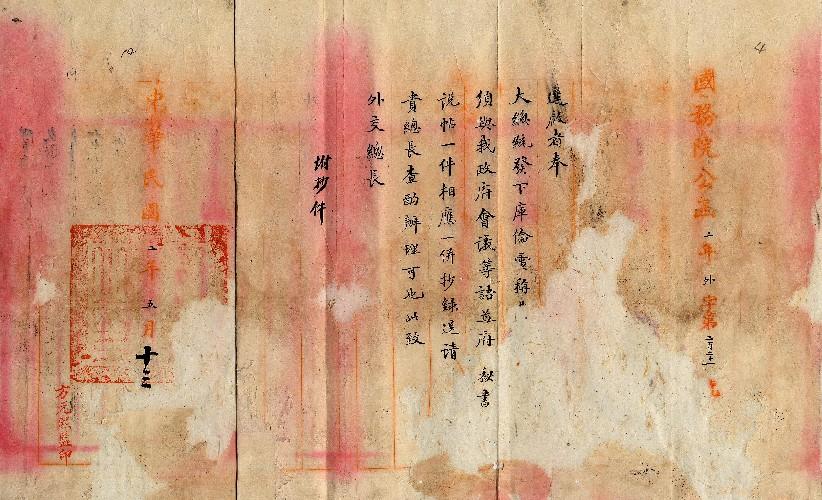 國務院公函 二年 外字第
逕啟者奉
大總統發下庫倫電稱
須與我政府會議等語並府 秘書
說帖一件相應一併抄錄送請
貴總長查酌辦理可也此致
外交總長
附抄件
中華民國二年五月十二
監印
4